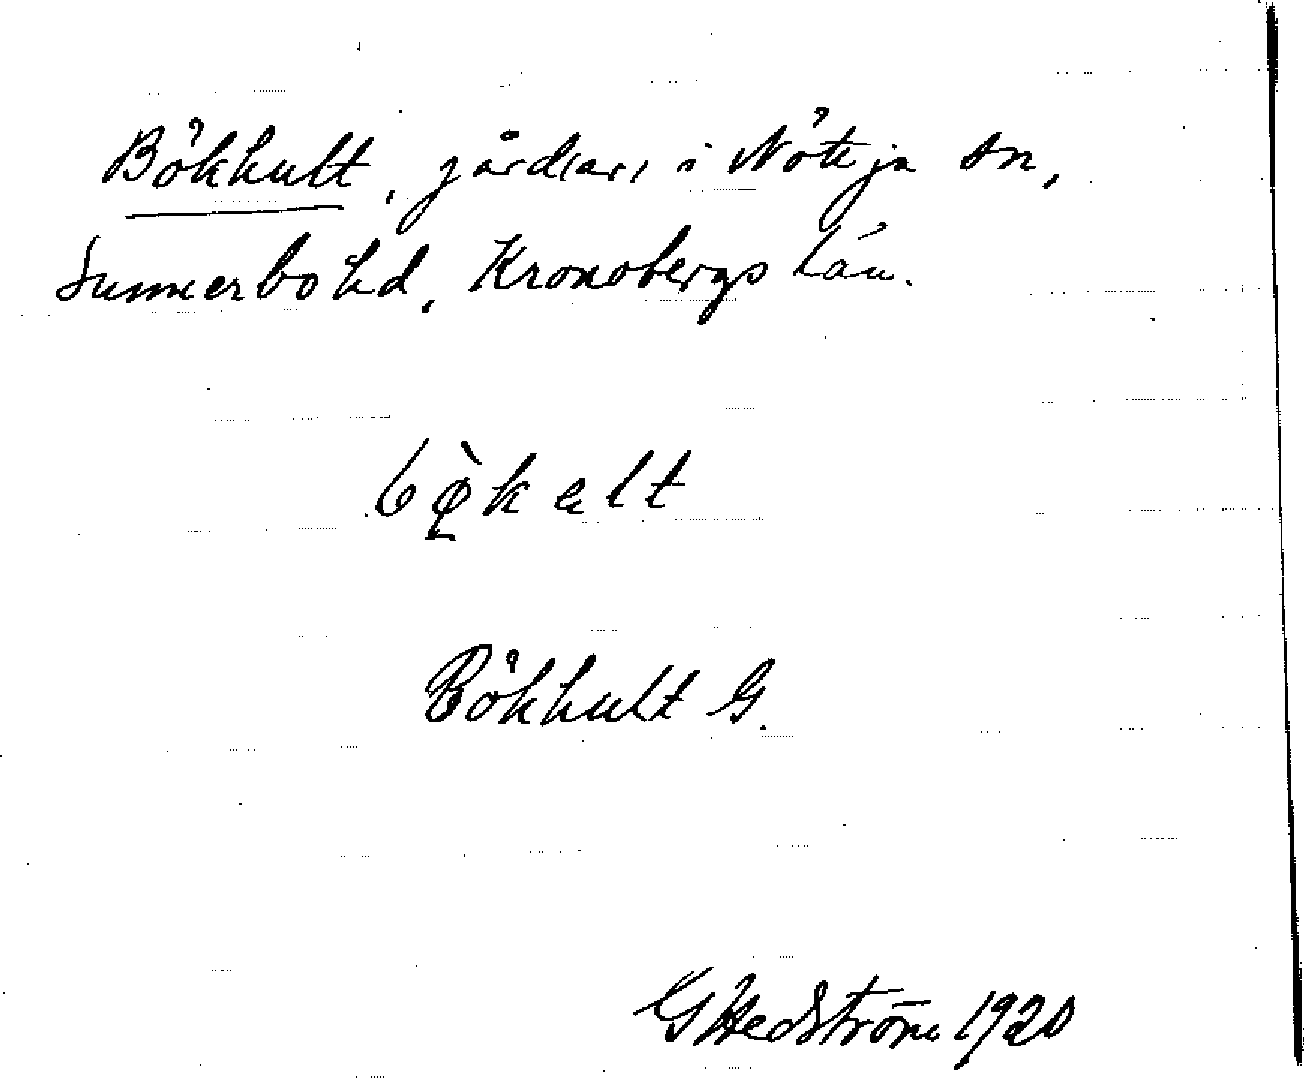 Bökhult, gård(ar) i Nöttja sn,
Sunnerbo hd, Kronobergs län.
bø̀kelt
Bökhult G.
G Hedström 1920